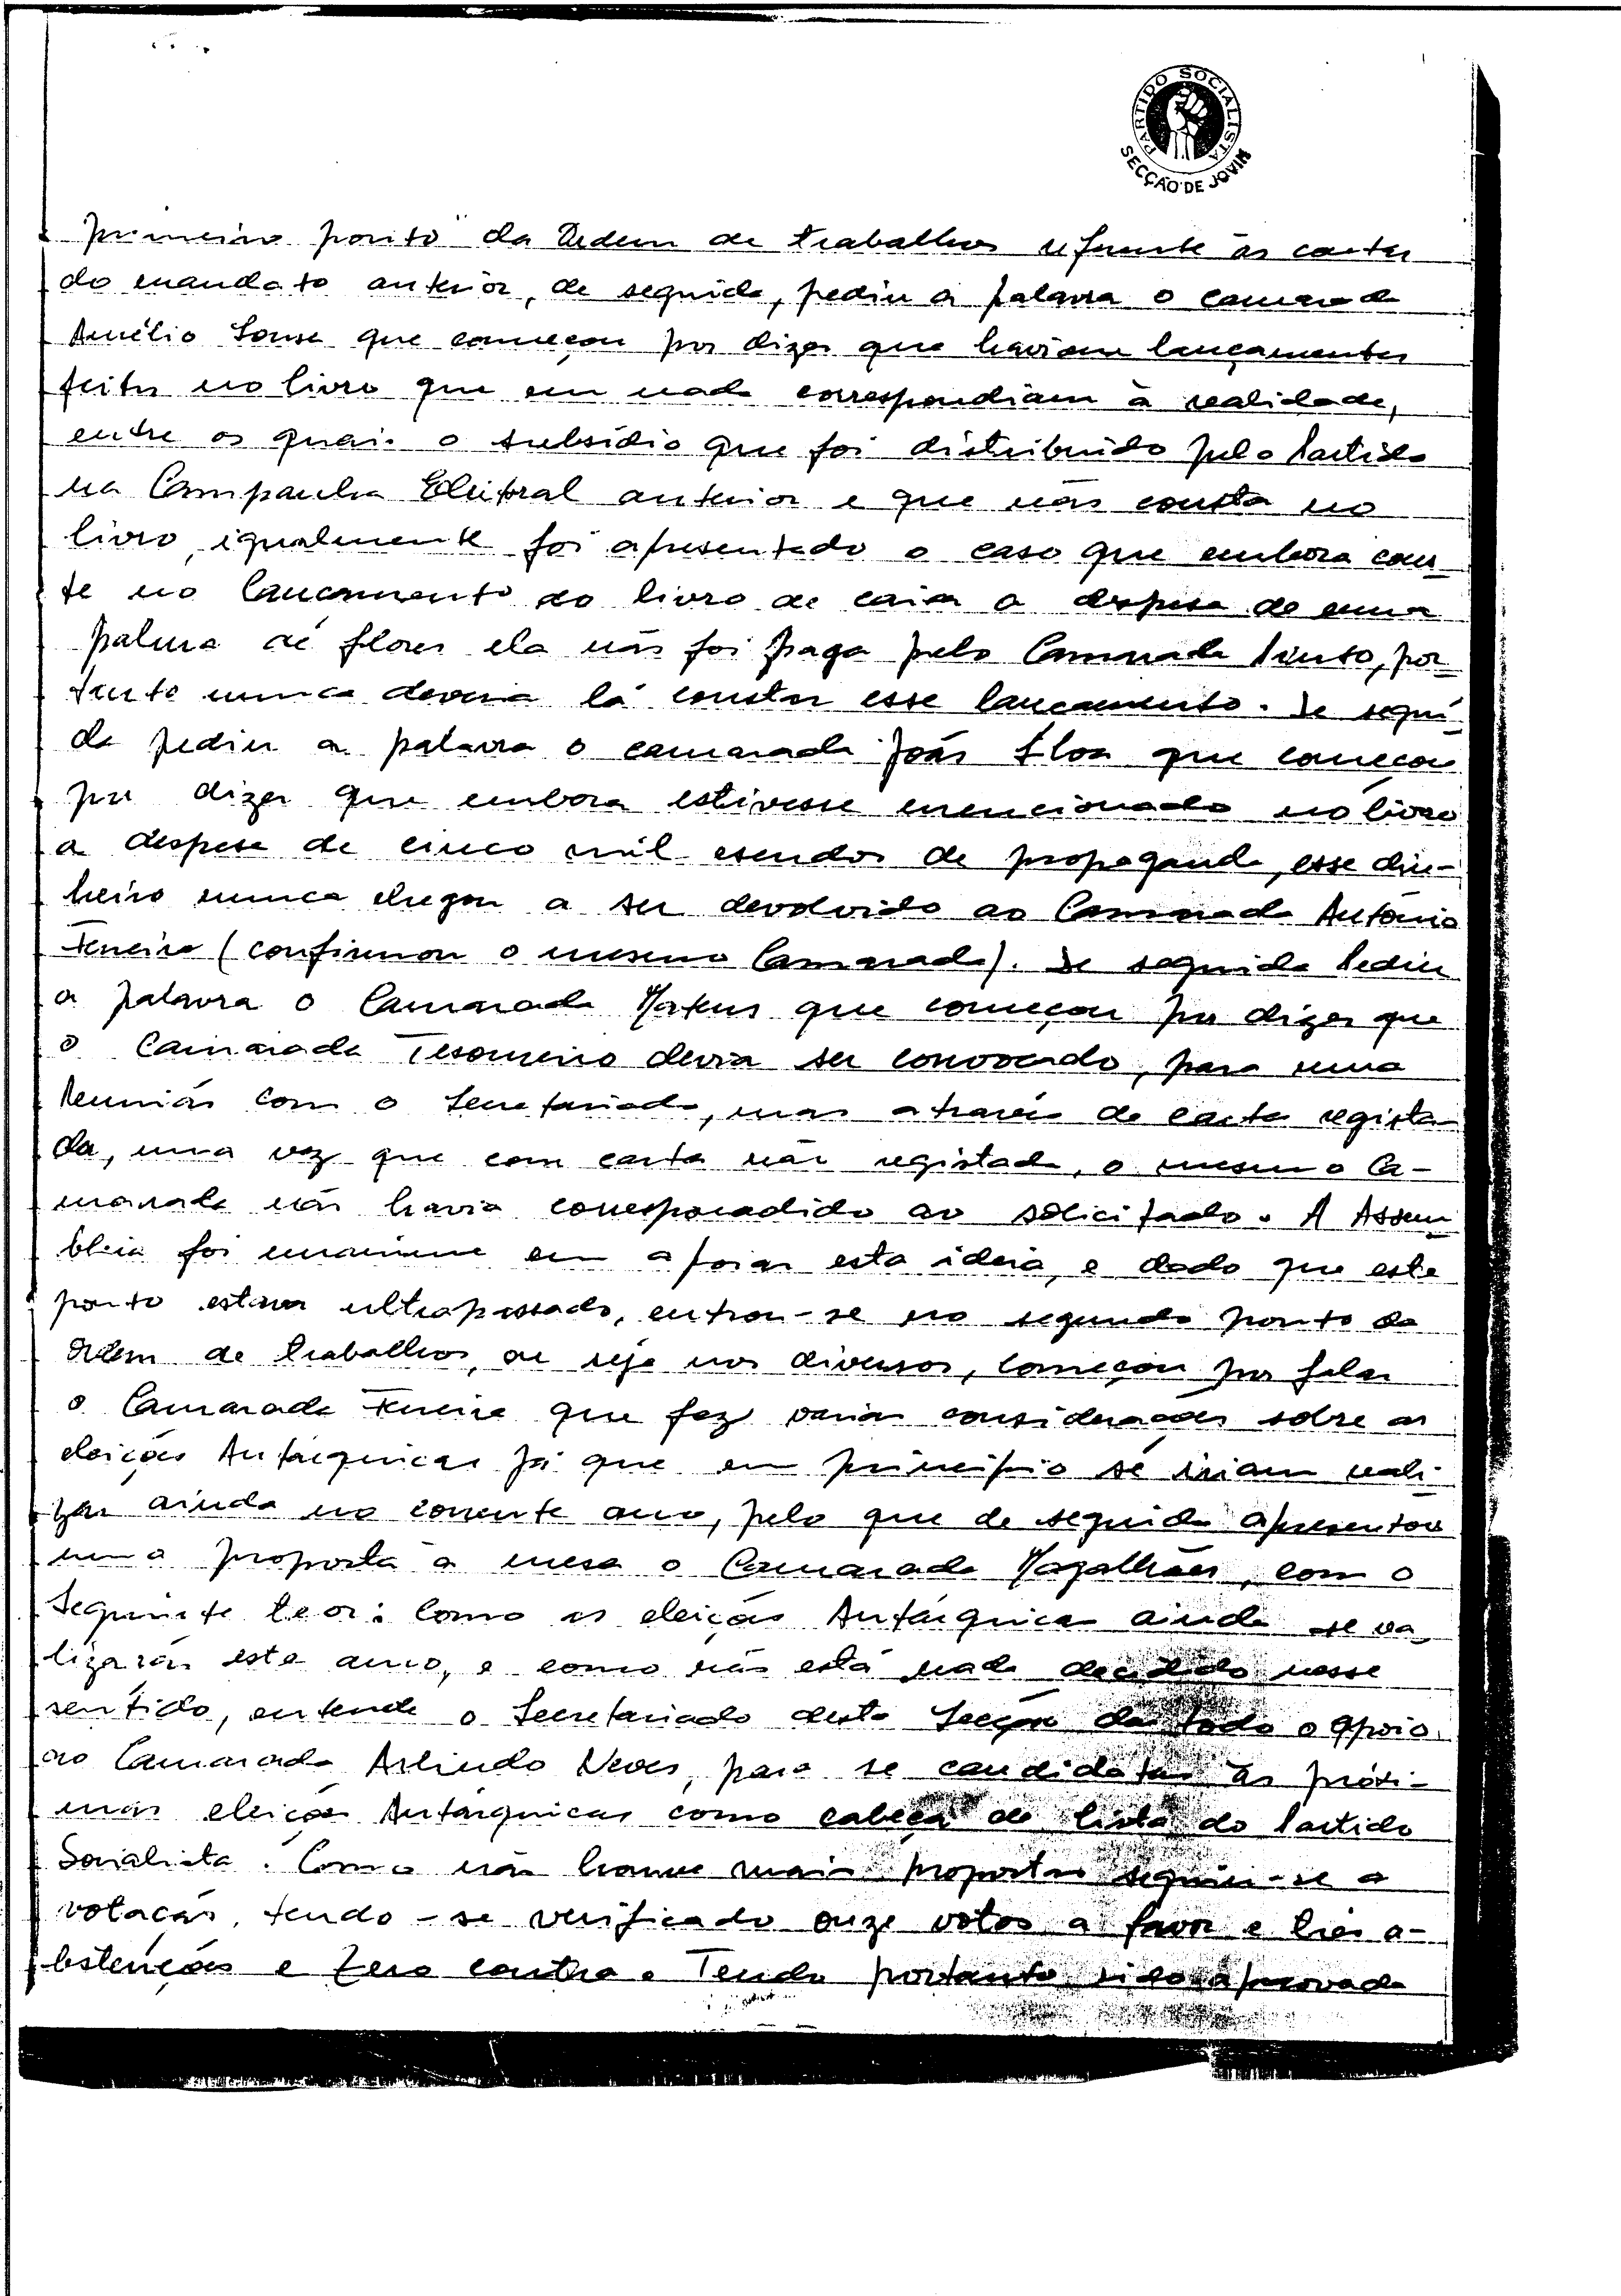 PARTIDO SOCIALISTA
SECÇÃO DE JOVIM
primeiro ponto da Ordem de trabalhos referente ás contas
do mandato anterior, de seguida, pediu a palavra o camarada
Aurélio Sousa que começou por dizer que haviam lançamentos
feitos no livro que em nada correspondiam à realidade,
entre os quais o subsídio que foi distribuído pelo Partido
na Campanha Eleitoral anterior e que não consta no
livro, igualmente foi apresentado o caso que embora cons-
te no lançamento do livro de caixa a despesa de uma
palma de flores ela não foi paga pelo Camarada Pinto, por-
tanto nunca deveria lá constar esse lançamento. De segui-
da pediu a palavra o camarada João que começou
por dizer que embora estivesse mencionado no livro
a despesa de cinco mil escudos de propaganda, esse din-
heiro nunca chegou a ser devolvido ao Camarada António
Ferreira (confirmou o mesmo Camarada). De seguida Pediu
a palavra o Camarada Mateus que começou por dizer que
o Camarada Tesoureiro devia ser convocado, para uma
Reunião com o Secretariado, mas através de carta regista-
da, uma vez que com carta não registada, o mesmo Ca-
marada não havia correspondido ao solicitado. A Assem-
bleia foi unanime em apoiar esta ideia, e dado que este
ponto estava ultrapassado, entrou-se no segundo ponto da
Ordem de trabalhos, ou seja nos diversos, começou por falar
o Camarada Ferreira que fez varias considerações sobre as
eleições Autárquicas já que em principio se iriam reali-
zar ainda no corrente ano, pelo que de seguida apresentou
uma proposta à mesa o Camarada Magalhães, com o
seguinte teor: Como as eleições Autárquicas ainda se rea-
lizarão este ano, e como não está nada decidido nesse
sentido, entende o Secretariado desta Secção dar todo o apoio
ao Camarada Arlindo Neves, para se candidatar ás próxi-
mas eleições Autárquicas como cabeça de lista do Partido
Socialista. Como não houve mais propostas seguiu-se a
votação, tendo-se verificado onze votos a favor e três a-
bstenções e Zero contra. Tendo portanto sido aprovada